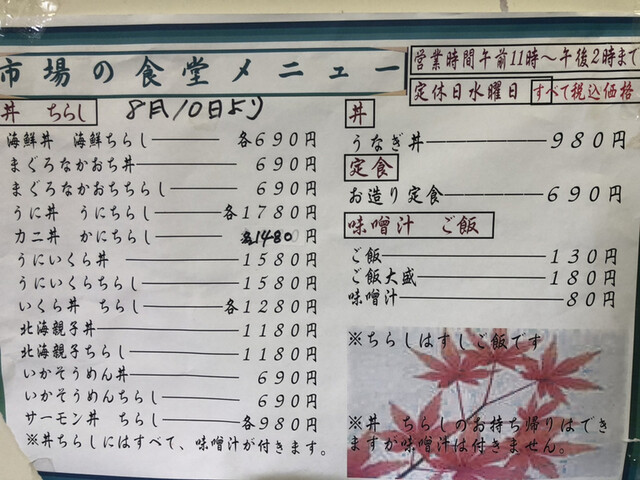 市場の食堂メニュー
営業時間午前11時～午後2時まで
定休日水曜日 すべて税込価格
丼 ちらし 8月10日より
海鮮丼 海鮮ちらし――各690円
まぐろなかおち丼――690円
まぐろなかおちちらし――690円
うに丼 うにちらし――各1780円
カニ丼 かにちらし――各1480円
うにいくら丼――1580円
うにいくらちらし――1580円
いくら丼 ちらし――各1280円
北海親子丼――1180円
北海親子ちらし――1180円
いかそうめん丼――690円
いかそうめんちらし――690円
サーモン丼 ちらし――各980円
※丼ちらしにはすべて、味噌汁が付きます。
丼
うなぎ丼――980円
定食
お造り定食――690円
味噌汁 ご飯
ご飯――130円
ご飯大盛――180円
味噌汁――80円
※ちらしはすしご飯です
※丼 ちらしのお持ち帰りはでき
ますが味噌汁は付きません。